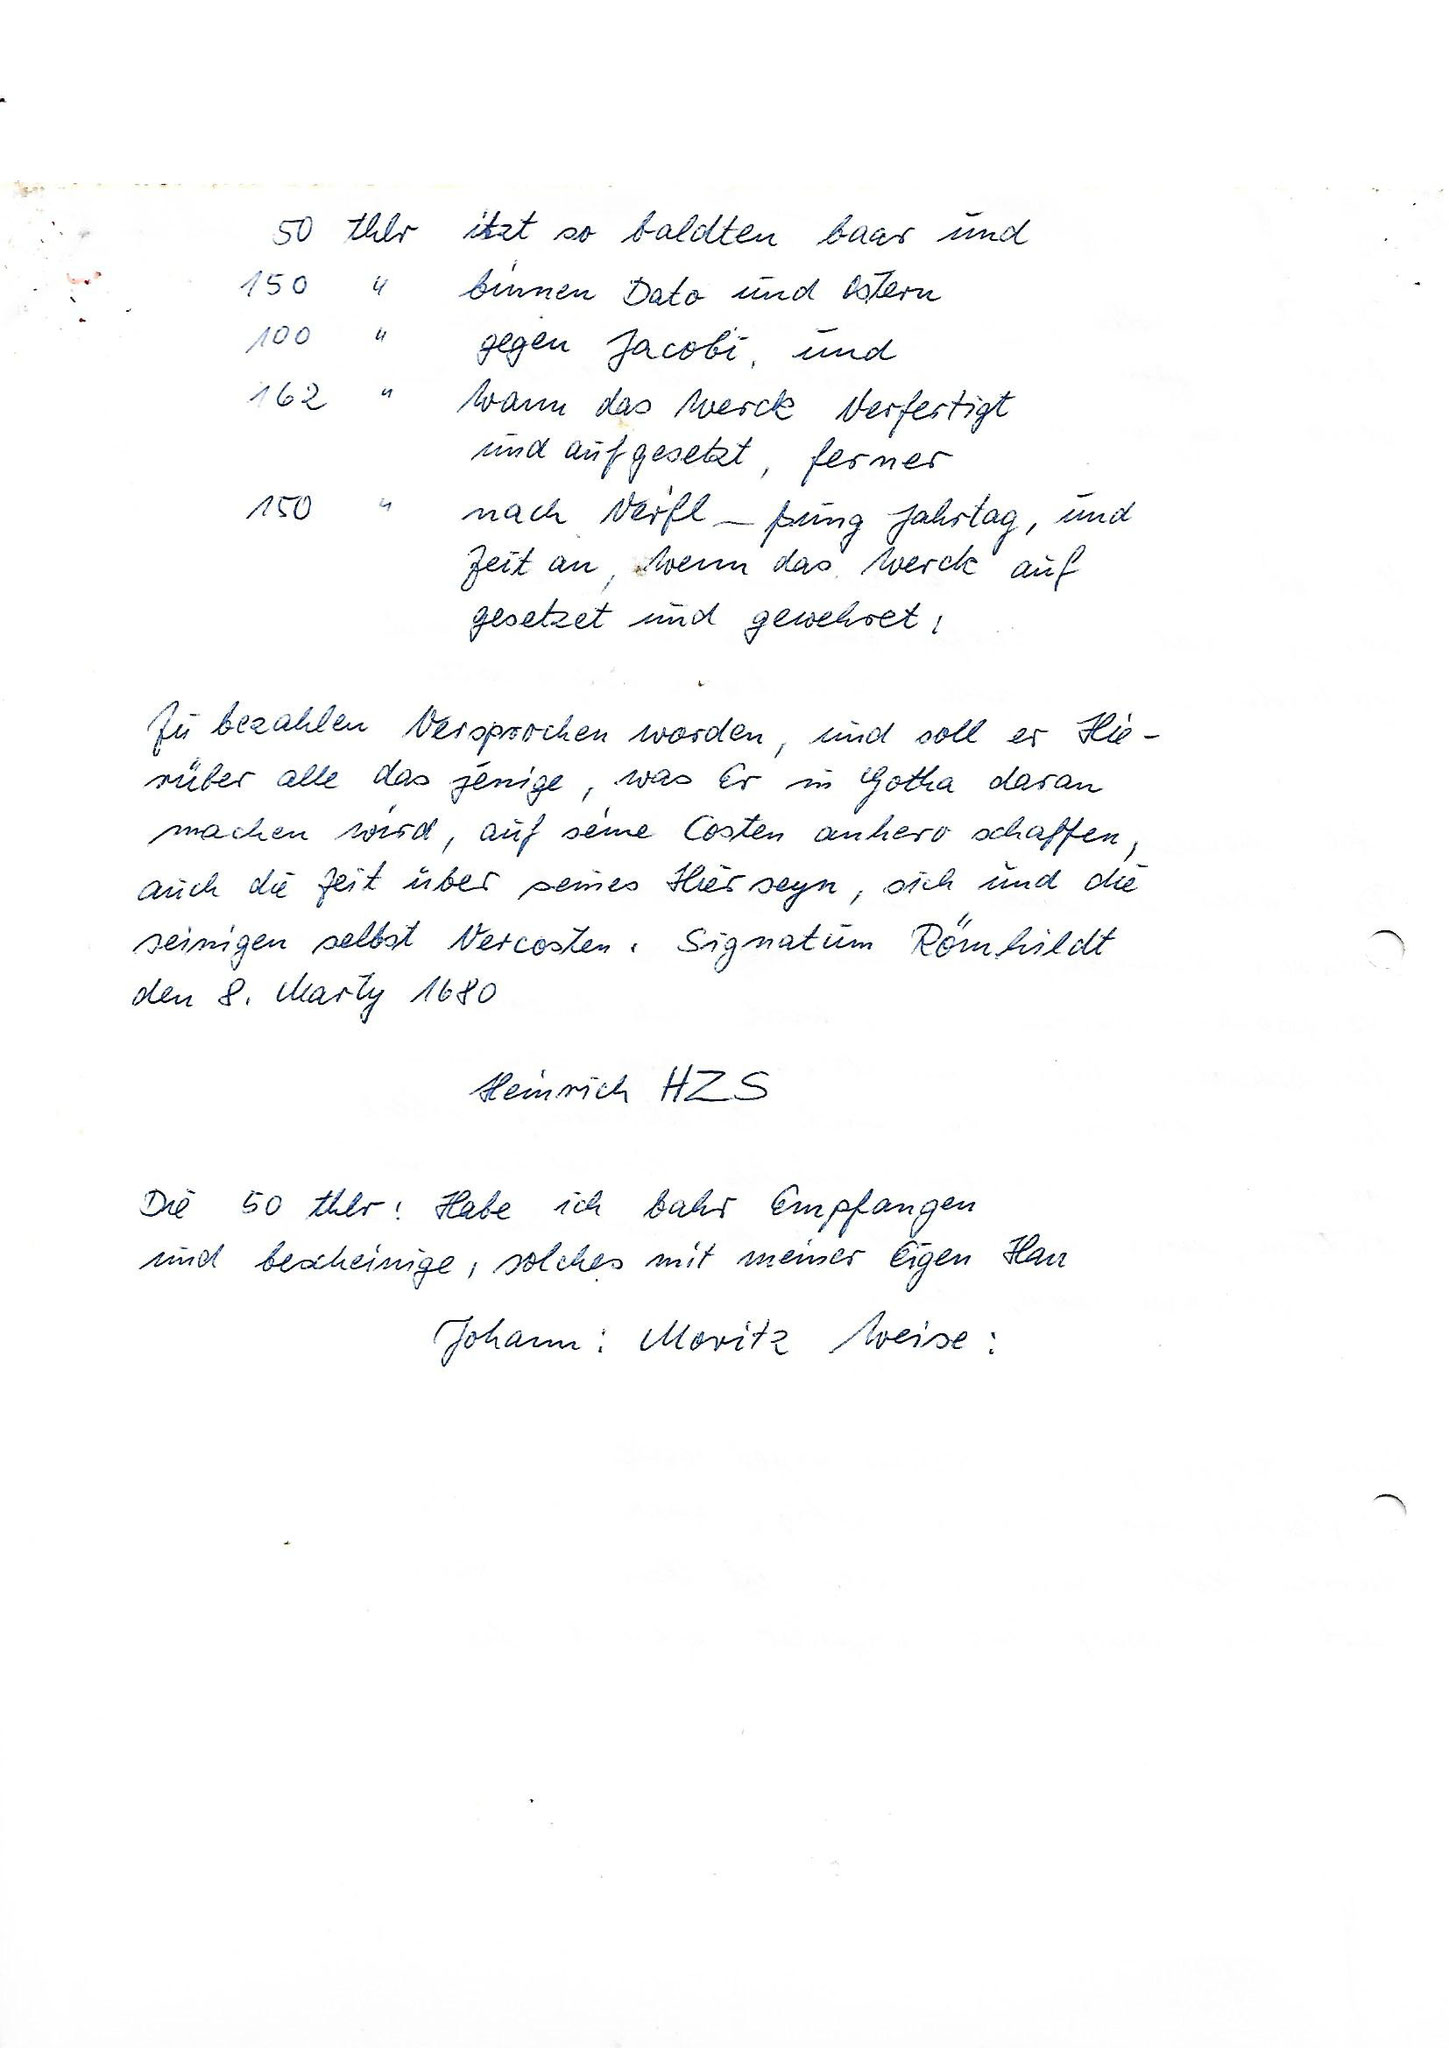 50 thlr itzt so baldten baar und
150 " binnen Dato und Ostern
100 " gegen Jacobi, und
162 " Wann das Werck Verfertigt
und aufgesetzt, ferner
150 " nach Verfl_ßung Jahrtag, und
Zeit an, Wenn das Werck auf
gesetzet und gewehret,
Zu bezahlen Versprochen worden, und soll er Hie-
rüber alle das jenige, was Er in Gotha daran
machen wird, auf seine Costen anhero schaffen,
auch die Zeit über seines Hierseyn, sich und die
seinigen selbst Vercosten. Signatum Römhildt
den 8. Marty 1680
Heinrich HZS
Die 50 thlr: Habe ich bahr Empfangen
und bescheinige, solches mit meiner Eigen Han
Johann: Moritz Weise: